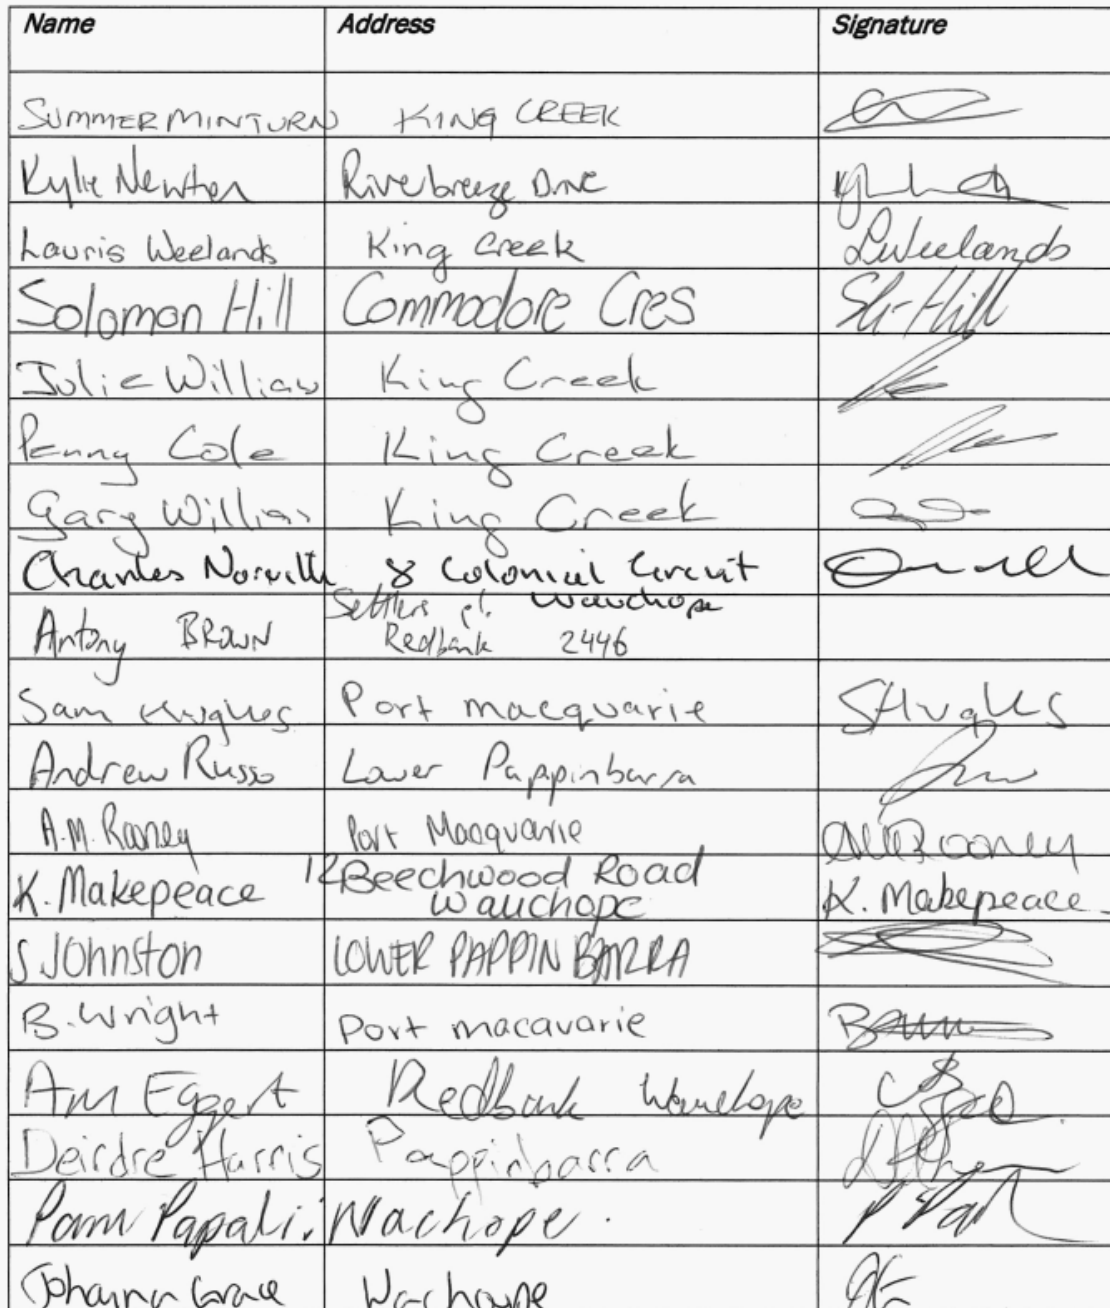 Name Address Signature
SUMMER MINTURN KING CREEK
Kylie Newton Riverbreeze Drive
Lauris Weelands King Creek LWeelands
Solomon Hill Commodore Cres Hill
Julie Williams King Creek
Penny Cole King Creek
Gary Williams King Creek
Charles 8 Colonial Circuit
Wauchope
Settlers pl.
Antony BROWN Redbank 2446
Sam Hughes Port macquarie SHughes
Andrew Russo Lower Pappinbarra
A.M. Rooney Port Macquarie AMRooney
K. Makepeace 12 Beechwood Road K. Makepeace
Wauchope
S JOHNSTON LOWER PAPPIN BARRA
B. Wright Port macavarie
AM Eggert Redbank Wauchope
Deirdre Harris Pappinbarra
Pam Papali. Wachope.
Johanna Grace Wachope